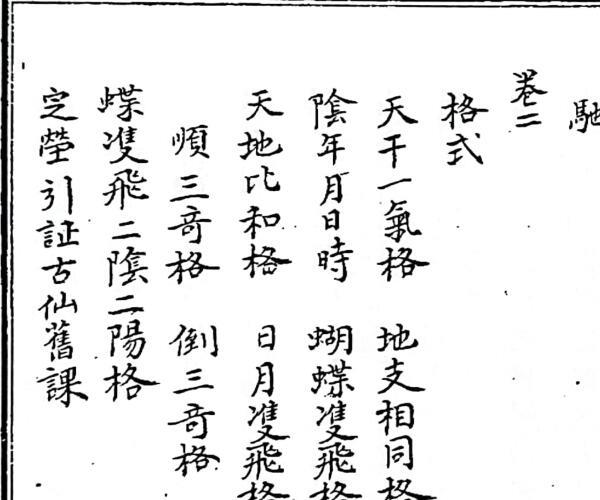 馳
卷二
格式
天干一氣格 地支相同格
陰年月日時 蝴蝶雙飛格
天地比和格 日月雙飛格
順三奇格 倒三奇格
蝶雙飛二陰二陽格
定榮引証古仙舊課